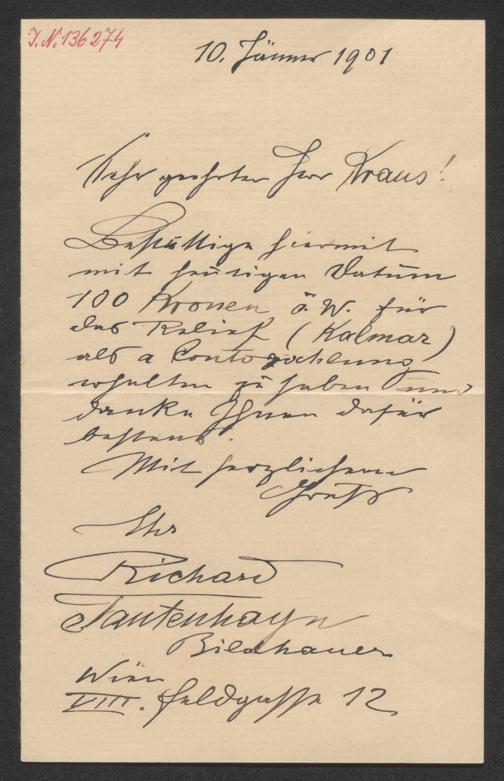 J.N. 136274
10. Jänner 1901
Sehr geehrter Herr Kraus!
Bestättige hiermit
mit heutigen Datum
100 Kronen ö. W. für
das Relief (Kalmar)
als a Contozahlung
erhalten zu haben und
danke Ihnen dafür
bestens.
Mit herzlichem
Gruß
Ihr
Richard
Tautenhayn
Bildhauer
Wien
VIII. Feldgasse 12